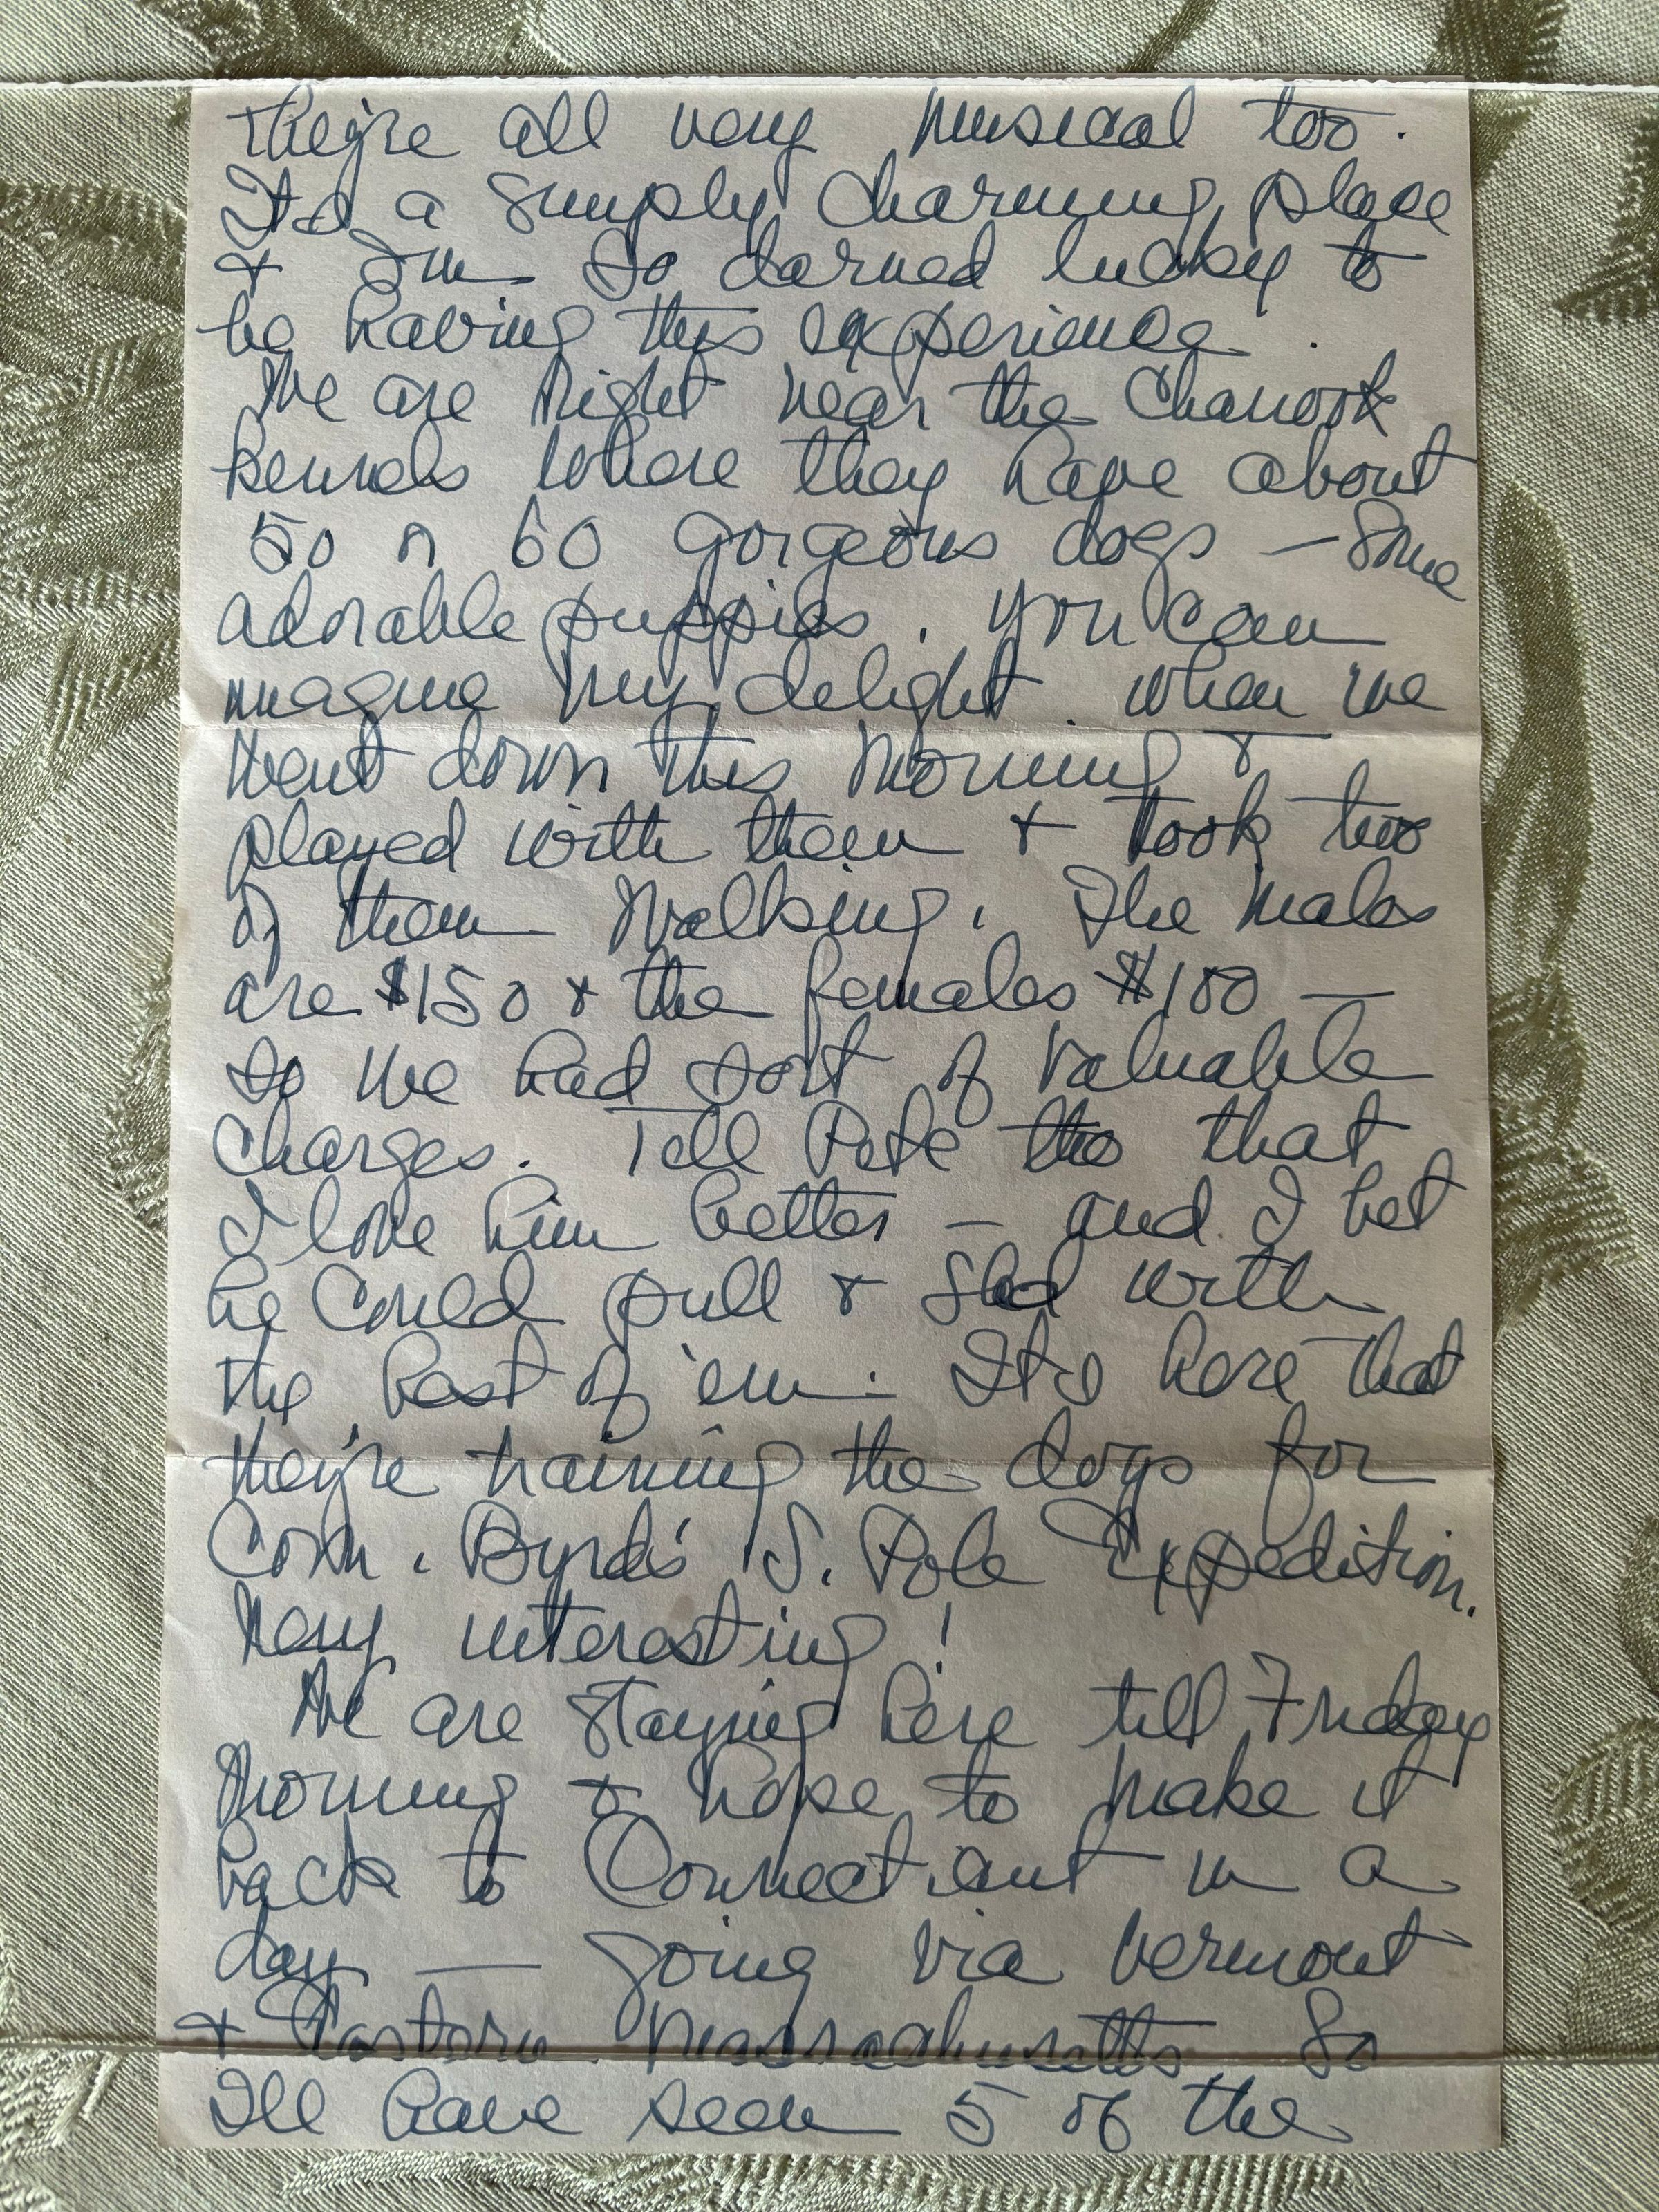 They're all very musical too.
It's a simply charming place
& I'm so darned lucky to
be having this experience.
We are right near the Chanook
kennels where they have about
50 or 60 gorgeous dogs — some
adorable puppies. You can
imagine my delight when we
went down this morning &
played with them & took two
of them walking. The males
are $150 & the females $100 —
so we had sort of valuable
charges. Tell Pete tho that
I love him better — and I bet
he could pull a sled with
the best of 'em. It's here that
they're training the dogs for
Com. Byrd's S. Pole Expedition.
Very interesting!
We are staying here till Friday
morning & hope to make it
back to Connecticut in a
day — going via Vermont
& Eastern Massachusetts so
I'll have seen 5 of the